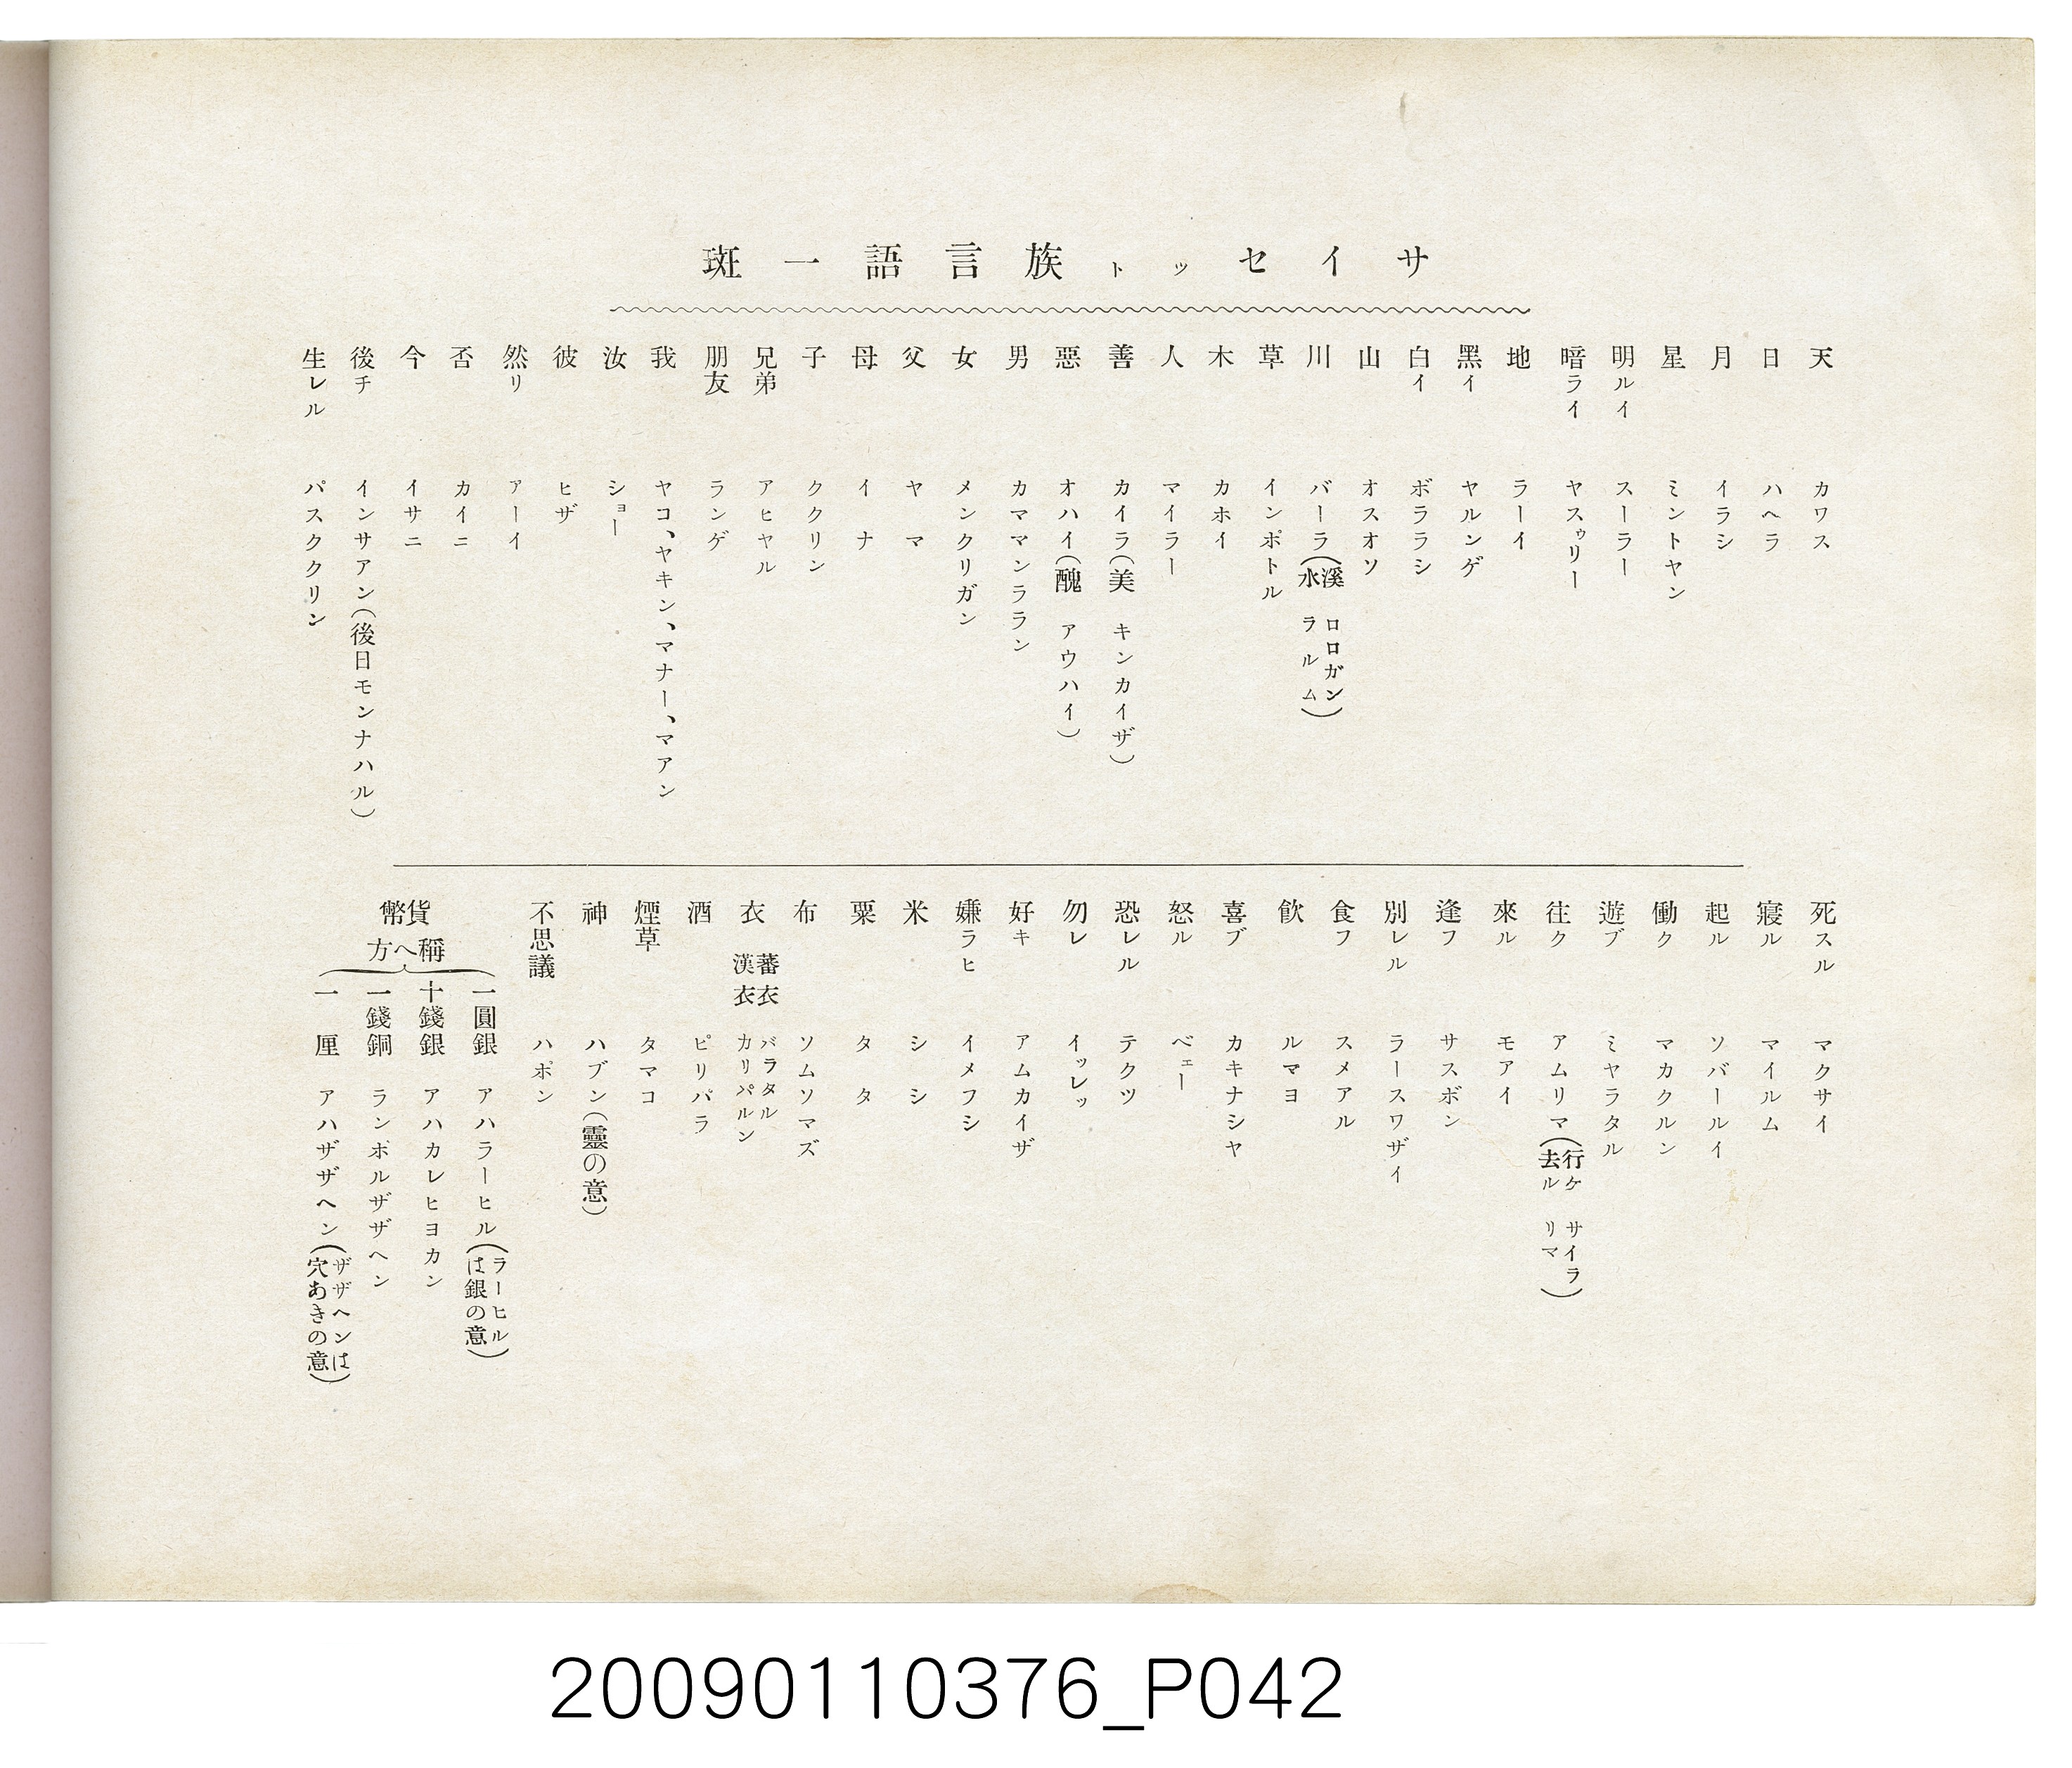 サイセット族言語一斑
天 カワス
日 ハヘラ
月 イラシ
星 ミントヤン
明ルイ スーラー
暗ライ ヤスゥリー
地 ラーイ
黑イ ヤルンゲ
白イ ボララシ
山 オスオソ
川 バーラ(溪 ロロガン 水 ラルム)
草 インポトル
木 カホイ
人 マイラー
善 カイラ(美 キンカイザ)
惡 オハイ(醜 アウハイ)
男 カママンララン
女 メンクリガン
父 ヤマ
母 イナ
子 ククリン
兄弟 アヒヤル
朋友 ランゲ
我 ヤコ、ヤキン、マナー、マアン
汝 ショー
彼 ヒザ
然リ アーイ
否 カイニ
今 イサニ
後チ インサアン(後日モンナハル)
生レル パスククリン
死スル マクサイ
寢ル マイルム
起ル ソバールイ
働ク マカクルン
遊ブ ミヤラタル
往ク アムリマ(行ケ サイラ 去ル リマ)
來ル モアイ
逢フ サスボン
別レル ラースワザイ
食フ スメアル
飮 ルマヨ
喜ブ カキナシヤ
怒ル ベェー
恐レル テクツ
勿レ イッレッ
好キ アムカイザ
嫌ラヒ イメフシ
米 シシ
粟 タタ
布 ソムソマズ
衣 蕃衣 バラタル 漢衣 カリパルン
酒 ピリパラ
煙草 タマコ
神 ハブン(靈の意)
不思議 ハポン
貨幣
稱へ方
一圓銀 アハラーヒル(ラーヒルは銀の意)
十錢銀 アハカレヒヨカン
一錢銅 ランボルザザヘン
一厘 アハザザヘン(ザザヘンは穴あきの意)
20090110376_P042